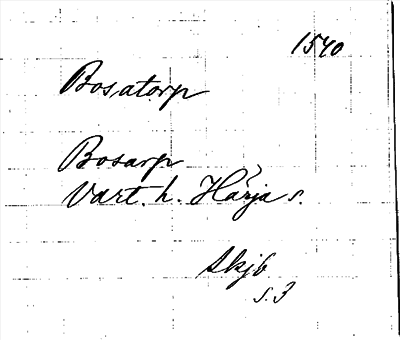 1540
Bosatorp
Bosarp
Vart. h. Härja s.
Skjb
s. 3